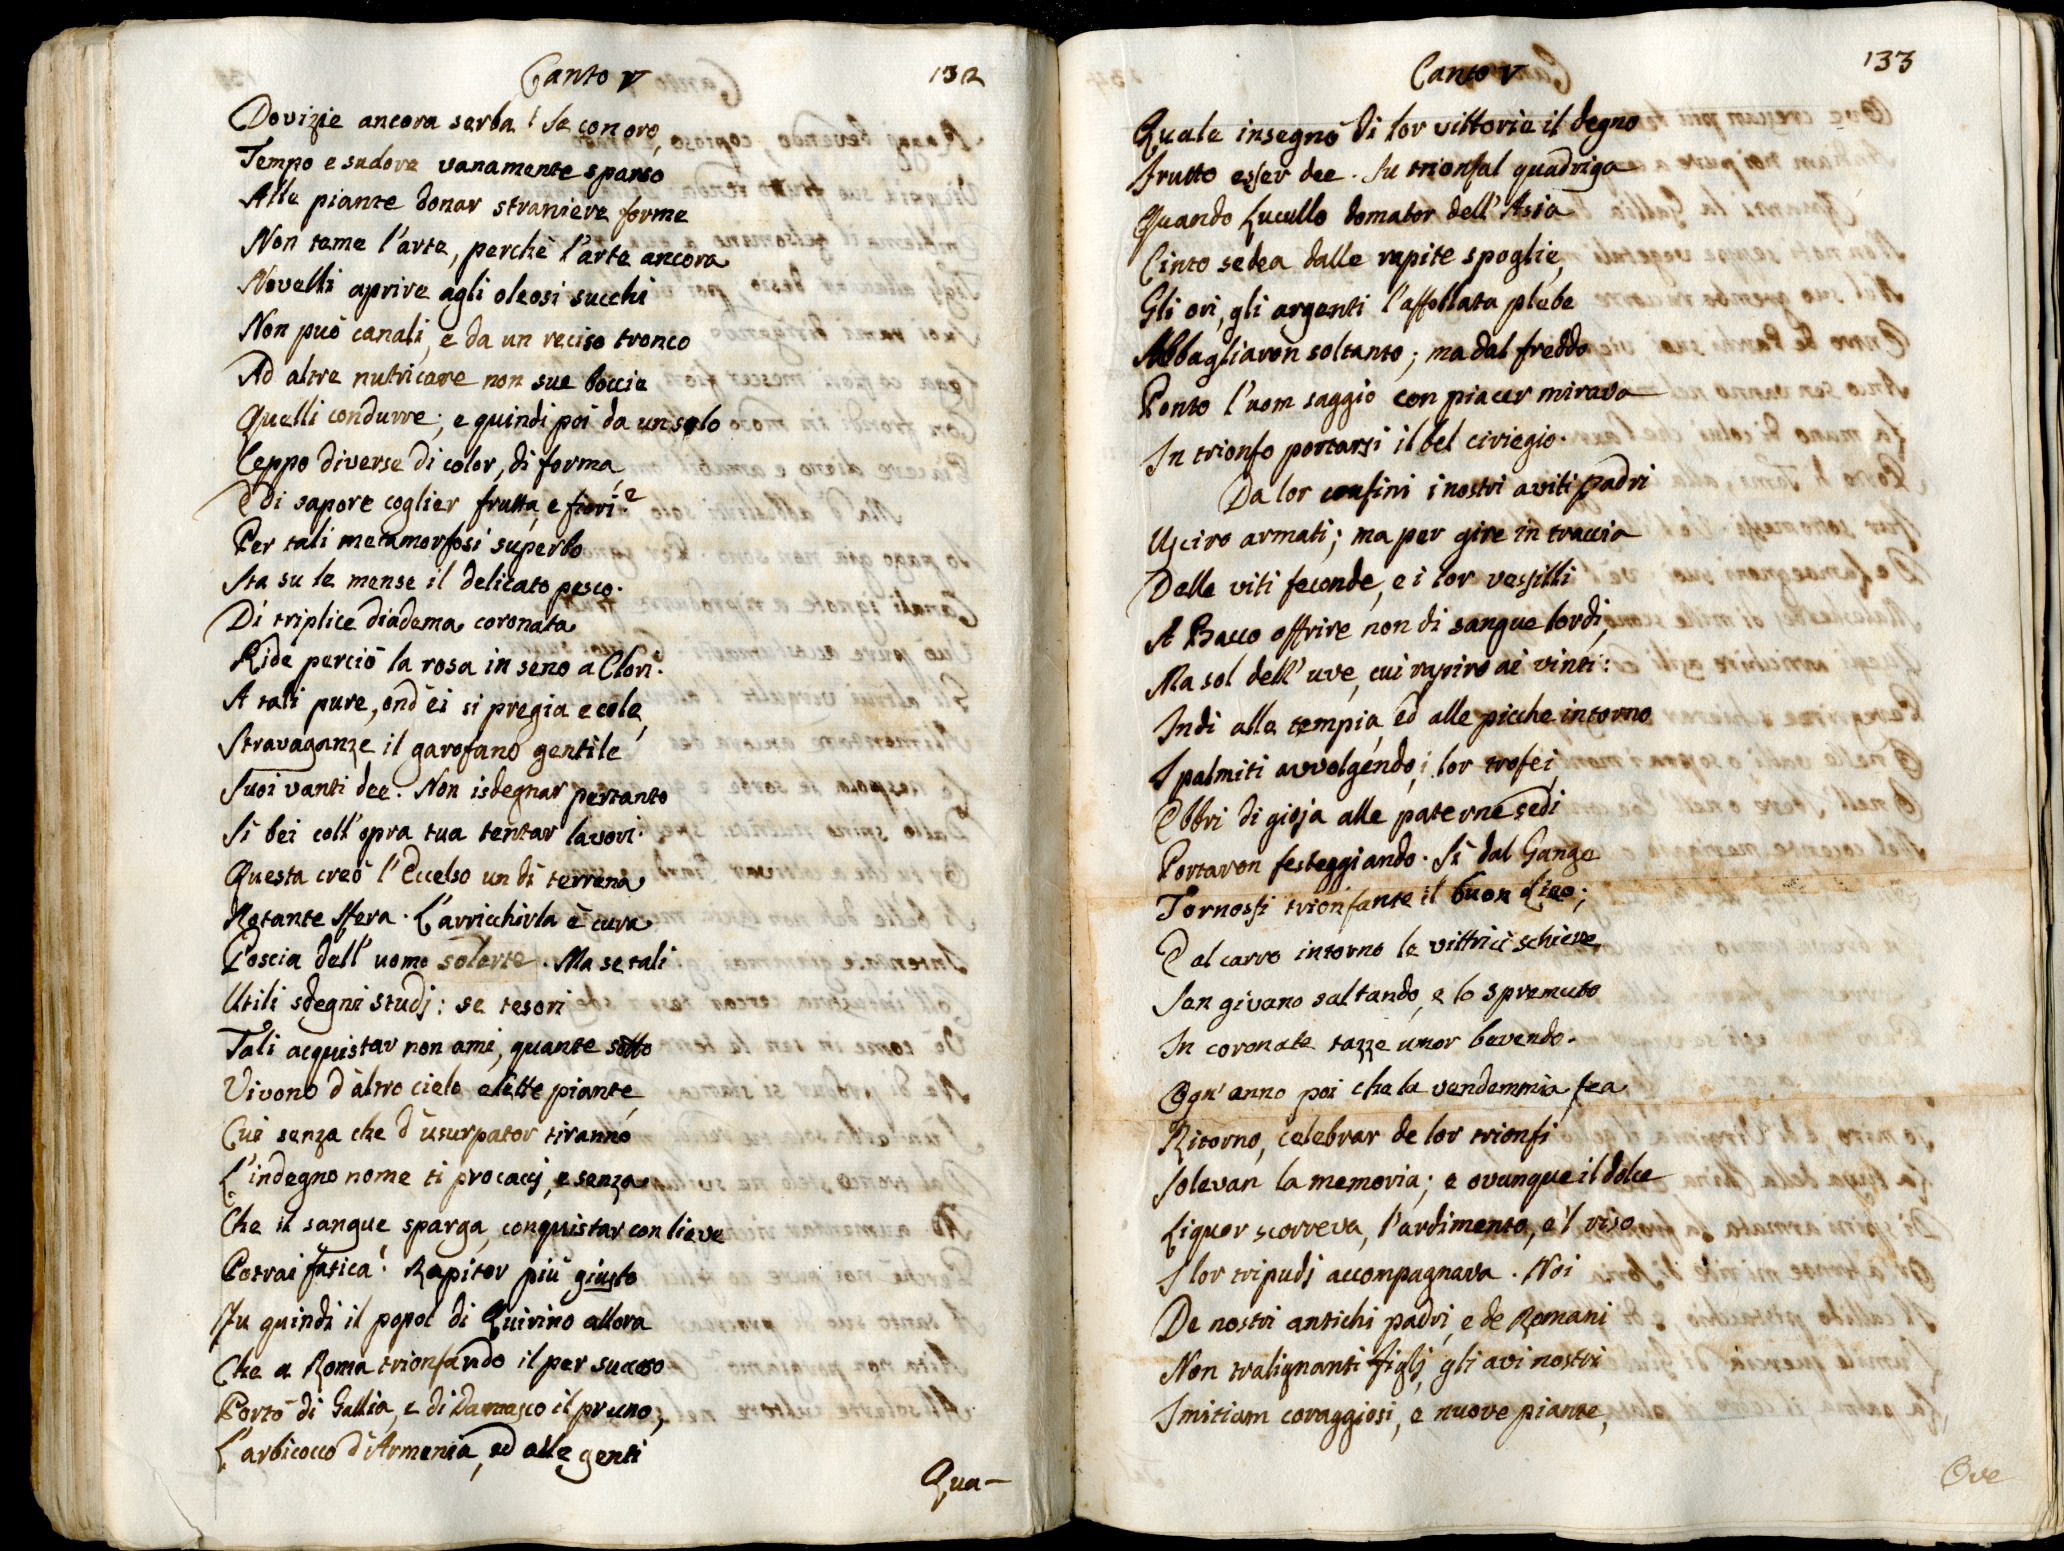 Canto V
132
Dovizie ancora serba! Se con oro,
Tempo e sudore vanamente sparso
Alle piante donar straniere forme
Non teme l'arte, perchè l'arte ancora
Novelli aprire agli oleosi succhi
Non può canali, e da un reciso tronco
Ad altre nutricare non sue boccie
Quelli condurre; e quindi poi da un solo
Ceppo diverse di color, di forma,
E di sapore coglier frutta, e fiori?
Per tali metamorfosi superbo
Sta su le mense il delicato pesco.
Di triplice diadema coronata
Ride perciò la rosa in seno a Clori.
A tali pure, ond'ei si pregia e cole,
Stravaganze il garofano gentile
Suoi vanti dee. Non isdegnar pertanto
Sì bei coll'opra tua tentar lavori.
Questa creò l'Eccelso un dì terrena
Rotante sfera. L'arricchirla è cura
Poscia dell'uomo solerte. Ma se tali
Utili sdegni studj: se tesori
Tali acquistar non ami, quante sotto
Vivono d'altro cielo elette piante,
Cui senza che d'usurpator tiranno
L'indegno nome ti procacci, e senza
Che il sangue sparga, conquistar con lieve
Potrai fatica! Rapitor più giusto
Fu quindi il popol di Quirino allora
Che a Roma trionfando il per
Portò di Gallia, e di Damasco il pruno,
L'arbicocco d'Armenia, ed alle genti
Qua-
Canto V
133
Quale insegnò di lor vittorie il degno
Frutto esser dee. Su trionfal quadriga
Quando Lucullo domator dell'Asia
Cinto sedea dalle rapite spoglie,
Gli ori, gli argenti l'affollata plebe
Abbagliaron soltanto; ma dal freddo
Ponto l'uom saggio con piacer mirava
In trionfo portarsi il bel ciriegio.
Da lor confini i nostri aviti padri
Usciro armati; ma per gire in traccia
Delle viti feconde, e i lor vessilli
A Bacco offrire non di sangue lordi,
Ma sol dell'uve, cui rapiro ai vinti:
Indi alle tempia, ed alle picche intorno
I palmiti avvolgendo, i lor trofei,
Ebbri di gioja alle paterne sedi
Portaron festeggiando. Sì dal Gange
Tornossi trionfante il buon Lieo;
E al carro intorno le vittrici schiere
Sen givano saltando, e lo spremuto
In coronate tazze umor bevendo.
Ogn'anno poi che la vendemmia fea
Ritorno, celebrar de lor trionfi
Solevan la memoria; e ovunque il dolce
Liquor scorreva, l'ardimento, e'l riso
I lor tripudj accompagnava. Noi
De nostri antichi padri, e de Romani
Non tralignanti figlj, gli avi nostri
Imitiam coraggiosi, e nuove piante,
Ove